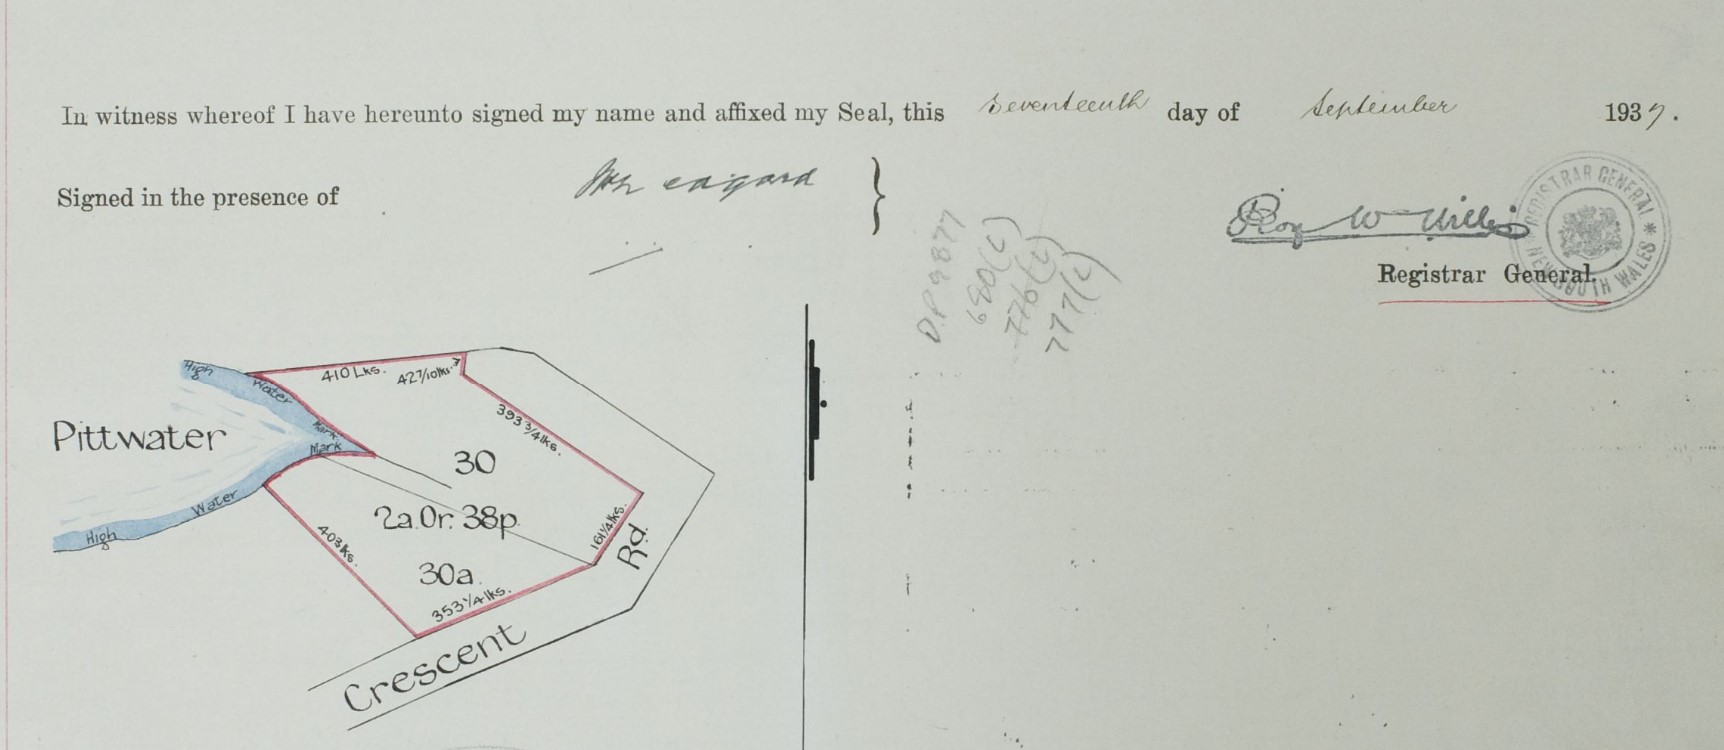 In witness whereof I have hereunto signed my name and affixed my Seal, this seventeenth day of September 1937.
Signed in the presence of
}
Roy W Willis
REGISTRAR GENERAL * NEW SOUTH WALES *
Registrar General.
D.P 9877
680(L)
776(L)
777(L)
Pittwater
High Water Mark
High Water Mark
410 Lks.
42 7/10 lks.
393 3/4 lks.
161 1/4 lks.
353 1/4 lks.
403 lks.
30
2a. 0r. 38p.
30a.
Crescent Rd.